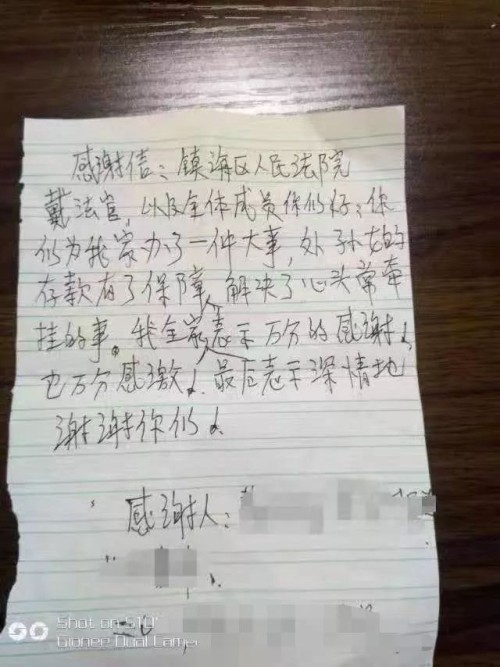 感谢信：镇海区人民法院
戴法官，以及全体成员你们好：你
们为我家办了一件大事，外孙女的
存款有了保障，解决了心头常牵
挂的事。我全家人表示万分的感谢，
也万分感激，最后表示深情地
谢谢你们，
感谢人：
Shot on S10
Gionee Dual Camera